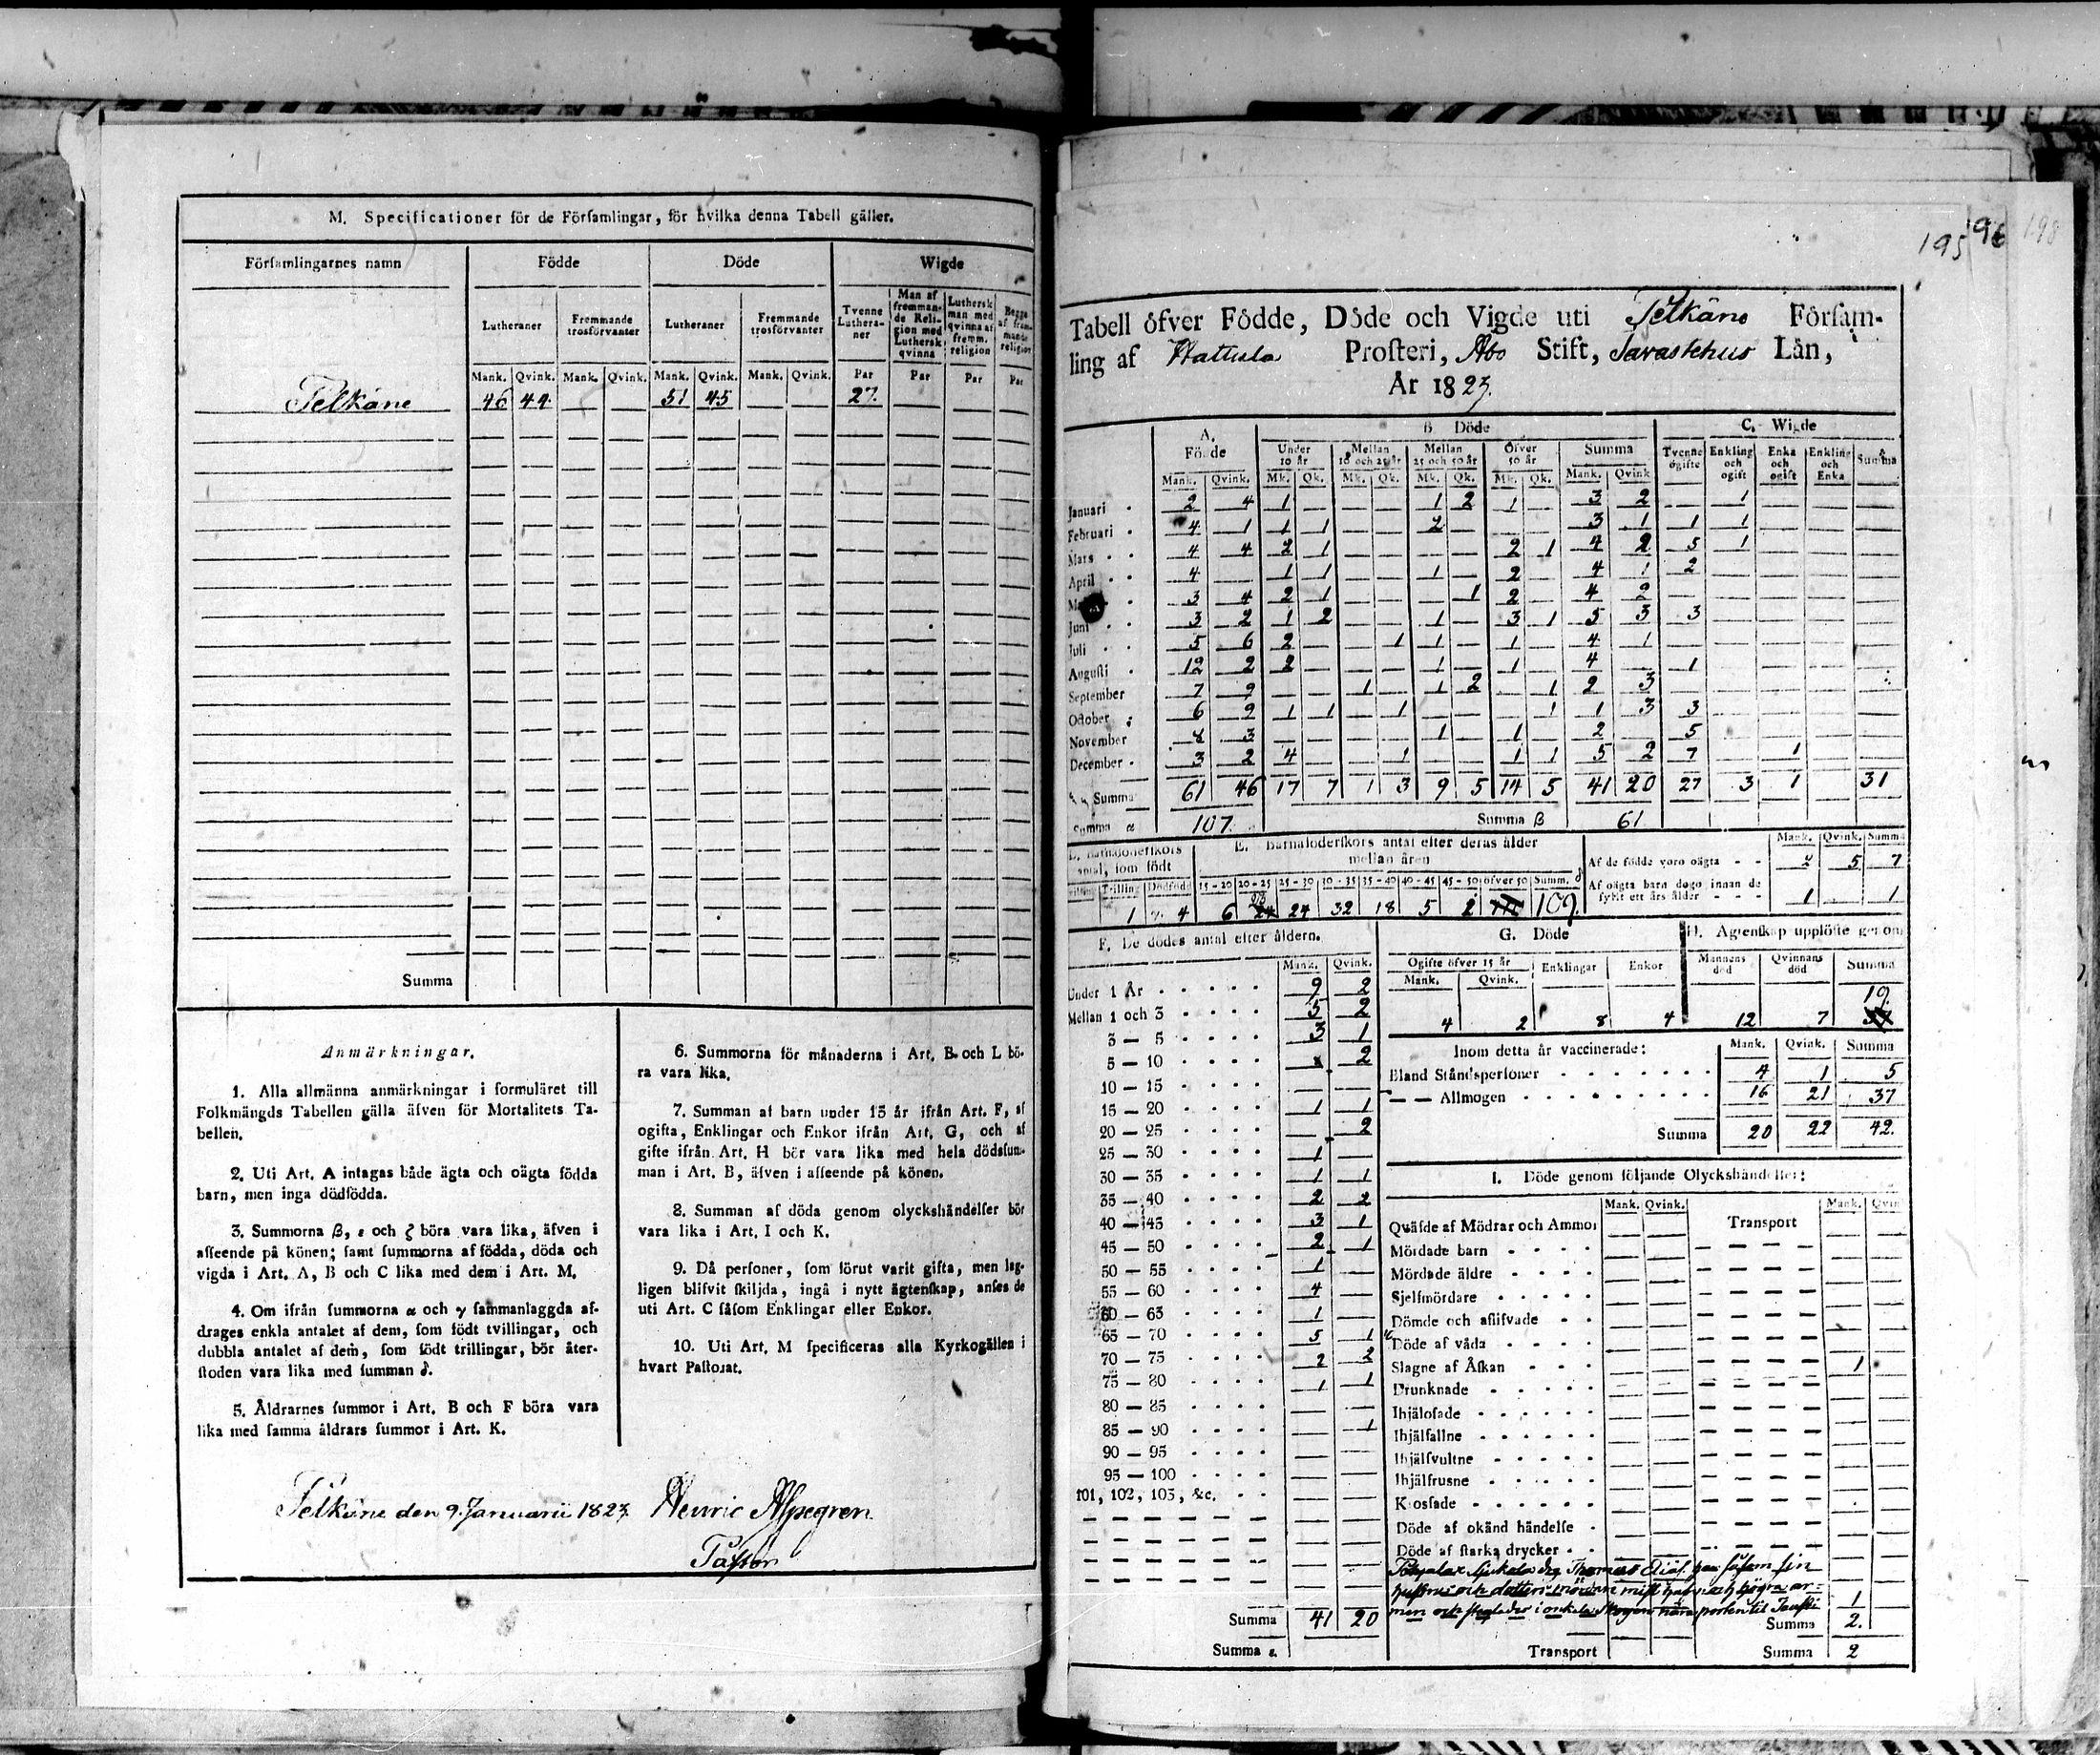 M. Specificationer för de Förſamlingar, för hvilka denna Tabell gäller.
Förſamlingarnes namn | Födde | Döde | Wigde
Lutheraner | Fremmande trosförvanter | Lutheraner | Fremmande trosförvanter | Tvenne Lutheraner | Man af fremmande Religion med Luthersk qvinna | Luthersk man med qvinna af fremm. religion | Begge af fremmande religion
Mank. | Qvink. | Mank. | Qvink. | Mank. | Qvink. | Mank. | Qvink. | Par | Par | Par | Par
Pelkäne | 46 | 44 | — | — | 51 | 45 | — | — | 27. | — | — | —
Summa
Anmärkningar.
1. Alla allmänna anmärkningar i formuläret till
Folkmängds Tabellen gälla äfven för Mortalitets Ta-
bellen.
2. Uti Art. A intagas både ägta och oägta födda
barn, men inga dödfödda.
3. Summorna ß, ε och ζ böra vara lika, äfven i
afſeende på könen; ſamt ſummorna af födda, döda och
vigda i Art. A, B och C lika med dem i Art. M.
4. Om ifrån ſummorna α och γ ſammanlaggda af-
drages enkla antalet af dem, ſom födt tvillingar, och
dubbla antalet af dem, ſom födt trillingar, bör åter-
ſtoden vara lika med ſumman δ.
5. Åldrarnes ſummor i Art. B och F böra vara
lika med ſamma åldrars ſummor i Art. K.
6. Summorna för månaderna i Art. B och L bö-
ra vara lika.
7. Summan af barn under 15 år ifrån Art. F, af
ogifta, Enklingar och Enkor ifrån Art. G, och af
gifte ifrån Art. H bör vara lika med hela dödsſum-
man i Art. B, äfven i afſeende på könen.
8. Summan af döda genom olyckshändelſer bör
vara lika i Art. I och K.
9. Då perſoner, ſom förut varit gifta, men lag-
ligen blifvit ſkiljda, ingå i nytt ägtenſkap, anſes de
uti Art. C ſåſom Enklingar eller Enkor.
10. Uti Art. M ſpecificeras alla Kyrkogällen i
hvart Paſtorat.
Pelkäne den 9 Januarii 1823. Henric Alpegren
Pastor
195 196 198
Tabell öfver Födde, Döde och Vigde uti Pelkäne Förſam-
ling af Hattula Proſteri, Åbo Stift, Tavastehus Län,
År 1823.
A. Födde | B. Döde | C. Wigde
Under 10 år | Mellan 10 och 25 år | Mellan 25 och 50 år | Öfver 50 år | Summa | Tvenne ogifte | Enkling och ogift | Enka och ogift | Enkling och Enka | Summa
Mank. | Qvink. | Mk. | Qk. | Mk. | Qk. | Mk. | Qk. | Mk. | Qk. | Mank. | Qvink.
Januari | 2 | 4 | 1 | — | — | — | 1 | 2 | 1 | — | 3 | 2 | — | 1
Februari | 4 | 1 | 1 | 1 | — | — | 2 | — | — | — | 3 | 1 | 1 | 1
Mars | 4 | 4 | 2 | 1 | — | — | — | — | 2 | 1 | 4 | 2 | 5 | 1
April | 4 | — | 1 | 1 | — | — | 1 | — | 2 | — | 4 | 1 | 2
3 | 4 | 2 | 1 | — | — | — | 1 | 2 | — | 4 | 2 | —
Juni | 3 | 2 | 1 | 2 | — | — | 1 | — | 3 | 1 | 5 | 3 | 3
Juli | 5 | 6 | 2 | — | — | 1 | 1 | — | 1 | — | 4 | 1 | —
Auguſti | 12 | 2 | 2 | — | — | — | 1 | — | 1 | — | 4 | — | 1
September | 7 | 9 | — | — | 1 | — | 1 | 2 | — | 1 | 2 | 3 | —
October | 6 | 9 | 1 | 1 | — | 1 | — | — | — | 1 | 1 | 3 | 3
November | 8 | 3 | — | — | — | — | 1 | — | 1 | — | 2 | — | 5
December | 3 | 2 | 4 | — | — | 1 | — | — | 1 | 1 | 5 | 2 | 7 | — | 1
Summa | 61 | 46 | 17 | 7 | 1 | 3 | 9 | 5 | 14 | 5 | 41 | 20 | 27 | 3 | 1 | — | 31
Summa α | 107. | Summa ß | 61
D. Barnaföderſkors antal, ſom födt
Trilling | Dödfödd
1 | 4
E. Barnaföderſkors antal efter deras ålder
mellan åren
15-20 | 20-25 | 25-30 | 30-35 | 35-40 | 40-45 | 45-50 | öfver 50 | Summ. δ
6 | 24 | 32 | 18 | 5 | 2 | 109.
Mank. | Qvink. | Summa
Af de födde voro oägta - - | 2 | 5 | 7
Af oägta barn dogo innan de
fyllt ett års ålder - - - | 1 | — | 1
F. De dödes antal efter åldern.
Mank. | Qvink.
Under 1 År | 9 | 2
Mellan 1 och 3 | 5 | 2
3 — 5 | 3 | 1
5 — 10 | — | 2
10 — 15 | — | —
15 — 20 | 1 | 1
20 — 25 | — | 2
25 — 30 | 1 | —
30 — 35 | 1 | 1
35 — 40 | 2 | 2
40 — 45 | 3 | 1
45 — 50 | 2 | 1
50 — 55 | 1 | —
55 — 60 | 4 | —
60 — 65 | 1 | —
65 — 70 | 5 | 1
70 — 75 | 2 | 2
75 — 80 | 1 | 1
80 — 85 | — | —
85 — 90 | — | 1
90 — 95 | — | —
95 — 100 | — | —
101, 102, 103, &c.
Summa | 41 | 20
Summa ε.
G. Döde
Ogifte öfver 15 år | Enklingar | Enkor
Mank. | Qvink.
4 | 2 | 8 | 4
H. Ägtenſkap upplöſte genom
Mannens död | Qvinnans död | Summa
12 | 7 | 19.
Inom detta år vaccinerade: | Mank. | Qvink. | Summa
Bland Ståndsperſoner | 4 | 1 | 5
— — Allmogen | 16 | 21 | 37
Summa | 20 | 22 | 42.
I. Döde genom följande Olyckshändelſer:
Mank. | Qvink. | Transport | Mank. | Qvin
Qväfde af Mödrar och Ammor
Mördade barn
Mördade äldre
Sjelfmördare
Dömde och aflifvade
Döde af våda
Slagne af Åſkan | 1
Drunknade
Ihjälofade
Ihjälfallne
Ihjälfvultne
Ihjälfrusne
Kloſsade
Döde af okänd händelſe
Döde af ſtarka drycker
Thomas Eliaſ. ſåſom ſin
och högra ar-
men och | 1
Summa | 2.
Transport | Summa | 2